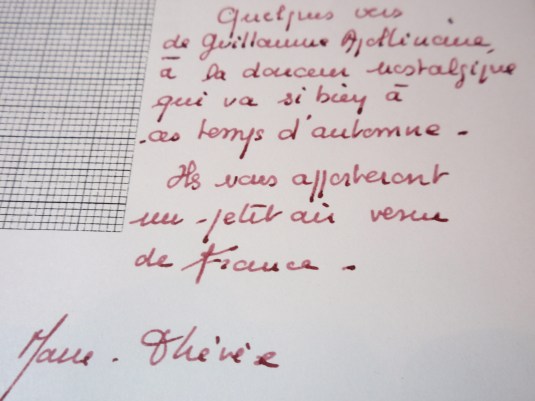 Quelques vers
de Guillaume Apollinaire,
à la douceur nostalgique
qui va si bien à
ces temps d'automne -
Ils vous apporteront
un petit air venu
de France -
Marie-Thérèse